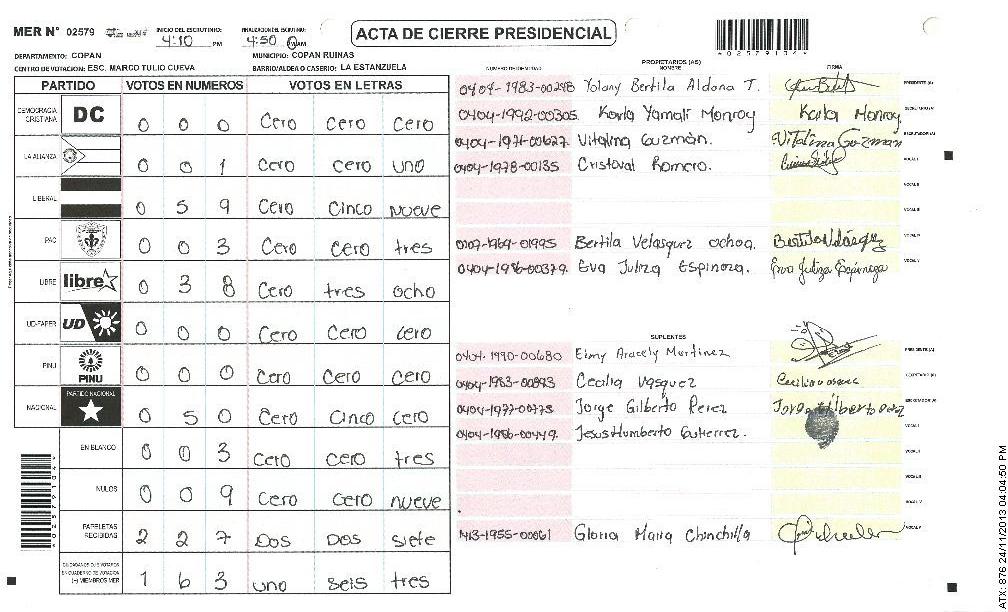 MER N° 02579
INICIO DEL ESCRUTINIO:
4:10 PM
FINALIZACION DEL ESCRUTINIO:
4:50 AM
ACTA DE CIERRE PRESIDENCIAL
02579104
DEPARTAMENTO: COPAN
MUNICIPIO: COPAN RUINAS
CENTRO DE VOTACION: ESC. MARCO TULIO CUEVA
BARRIO/ALDEA O CASERIO: LA ESTANZUELA
PARTIDO VOTOS EN NUMEROS VOTOS EN LETRAS
DEMOCRACIA CRISTIANA DC 0 0 0 Cero Cero Cero
LA ALIANZA 0 0 1 Cero cero uno
LIBERAL 0 5 9 Cero Cinco nueve
PAC 0 0 3 Cero Cero tres
LIBRE libre 0 3 8 Cero tres ocho
UD-FAPER UD 0 0 0 Cero Cero Cero
PINU PINU 0 0 0 Cero Cero Cero
NACIONAL PARTIDO NACIONAL 0 5 0 Cero Cinco Cero
EN BLANCO 0 0 3 Cero cero tres
NULOS 0 0 9 Cero Cero nueve
PAPELETAS RECIBIDAS 2 2 7 Dos Dos siete
CIUDADANOS QUE VOTARON EN CUADERNO DE VOTACION (+) MIEMBROS MER 1 6 3 uno seis tres
PROPIETARIOS (AS)
NUMERO DE IDENTIDAD NOMBRE FIRMA
0404-1983-00248 Yolany Bertila Aldana T. PRESIDENTE (A)
0404-1992-00305 Karla Yamali Monroy Karla Monroy SECRETARIO (A)
0404-1971-00627 Vitalina Guzmán. Vitalina Guzman ESCRUTADOR (A)
0404-1978-00135 Cristoval Romero. VOCAL I
VOCAL II
VOCAL III
0107-1969-01995 Bertila Velasquez ochoa. Bertila Velásquez VOCAL IV
0404-1986-00379. Eva Juliza Espinoza. Eva Juliza Espinoza VOCAL V
SUPLENTES
0404-1990-00680 Eimy Aracely Martinez PRESIDENTE (A)
0404-1983-00893 Cecilia Vasquez SECRETARIO (A)
0404-1977-00773 Jorge Gilberto Perez ESCRUTADOR (A)
0404-1986-00449. Jesus Humberto Gutierrez. VOCAL I
VOCAL II
VOCAL III
VOCAL IV
1413-1955-00061 Gloria Maria Chinchilla VOCAL V
ATX: 876 24/11/2013 04:04:50 PM